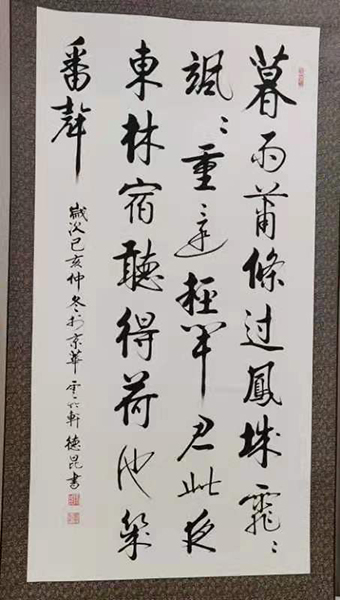 暮雨蕭條过鳳城霏〻
颯〻重還輕聞君此夜
東林宿聽得荷池幾
番聲
歲次己亥仲冬於京華雲軒德昆書